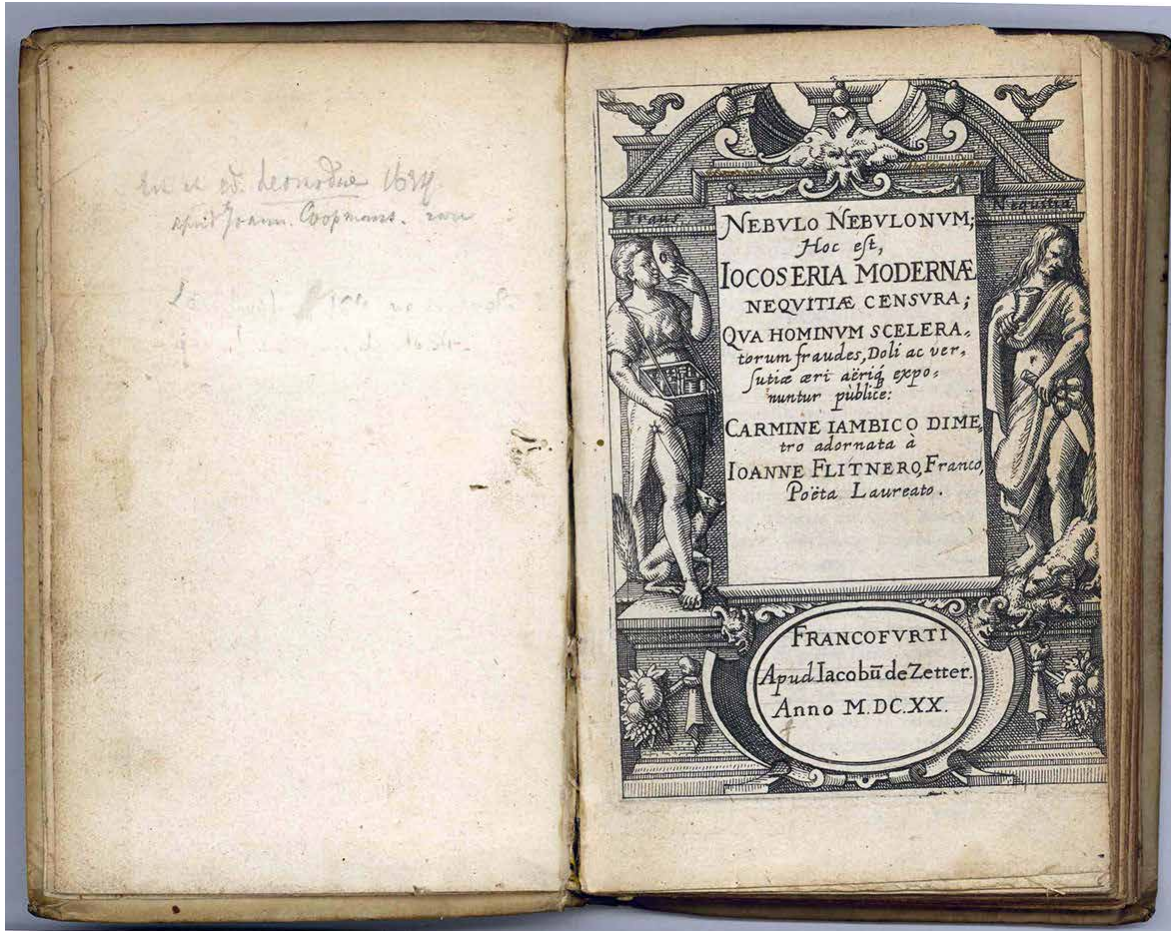 Est et ed. Leonardiae 1634
apud Joann. Coopmans. rare
Fraus
Nequitia
NEBVLO NEBVLONVM;
Hoc eſt,
IOCOSERIA MODERNÆ
NEQVITIÆ CENSVRA;
QVA HOMINVM SCELERA-
torum fraudes, Doli ac ver-
ſutiæ æri aëriq́ expo-
nuntur pùblice:
CARMINE IAMBICO DIME,
tro adornata à
IOANNE FLITNERO, Franco,
Poëta Laureato.
FRANCOFVRTI
Apud Iacobū de Zetter.
Anno M.DC.XX.